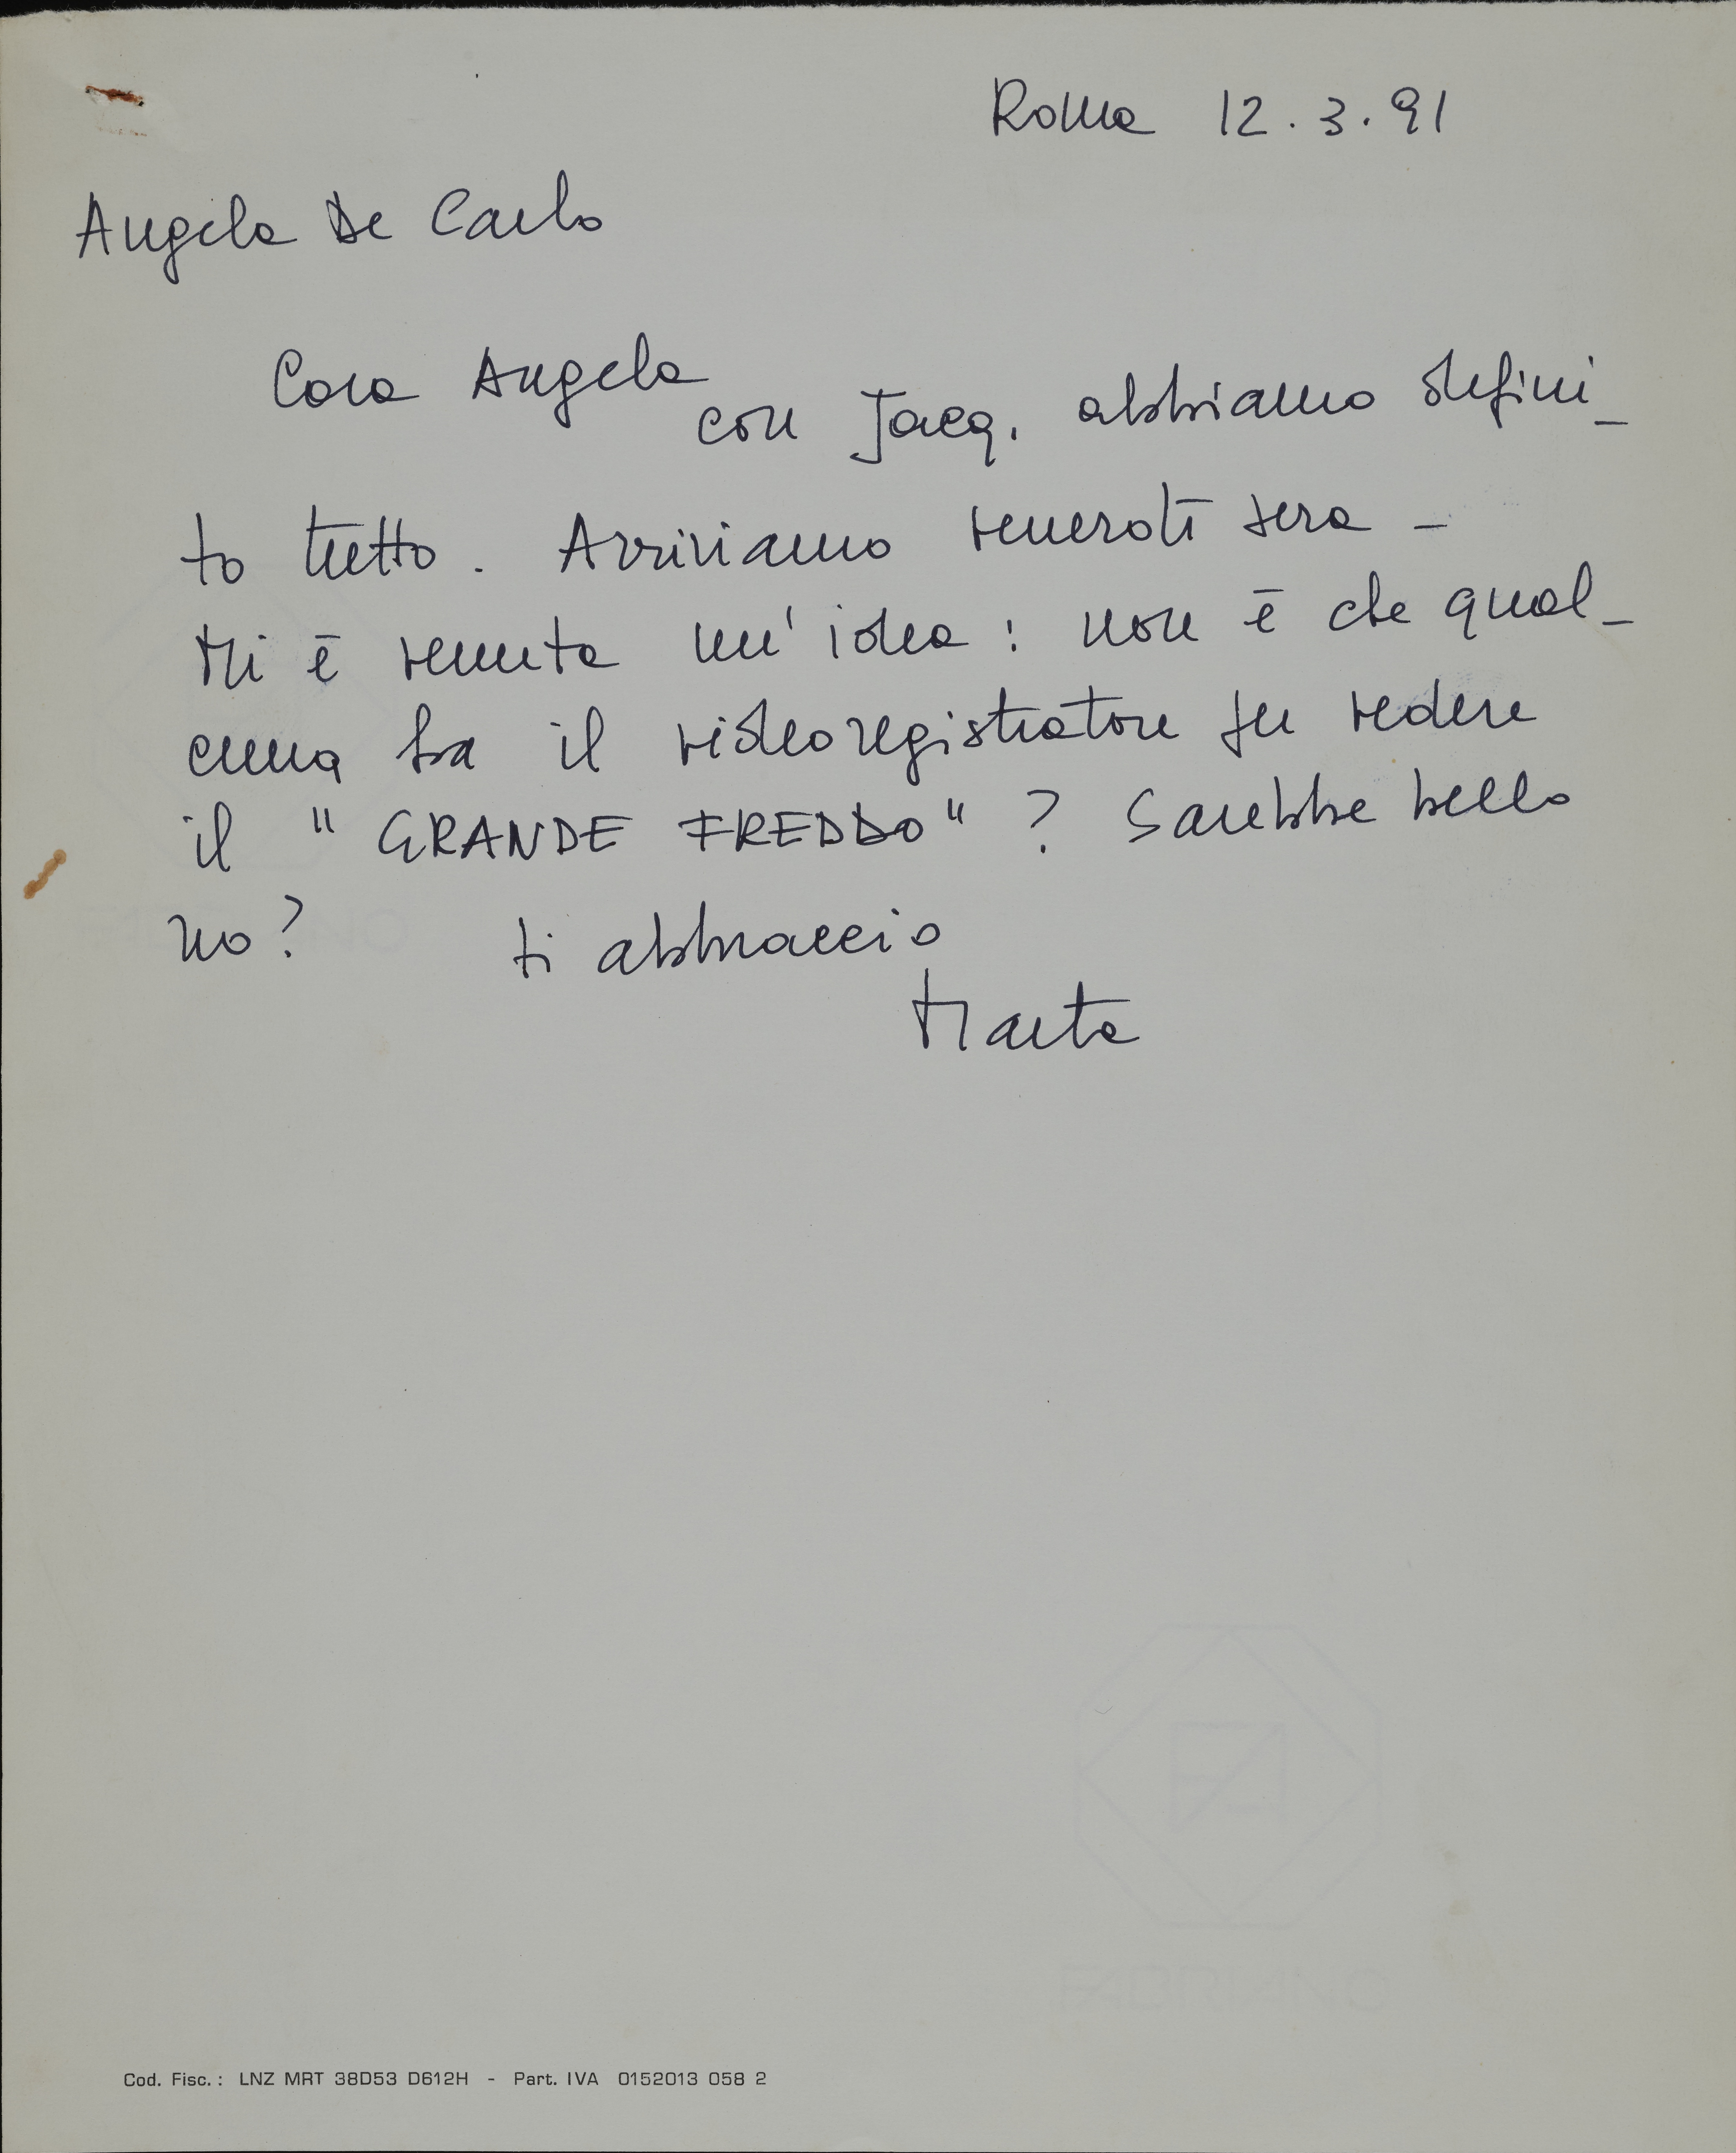 Roma 12.3.91
Angela De Carlo
Cara Angela
con Jacq. abbiamo defini_
to tutto. Arriviamo venerdì sera -
Mi è venuta un' idea : non è che qual_
cuna ha il videoregistratore per vedere
il "GRANDE FREDDO"? Sarebbe bello
no? ti abbraccio
Marta
FABRIANO
Cod. Fisc.: LNZ MRT 38D53 D612H - Part. IVA 0152013 058 2